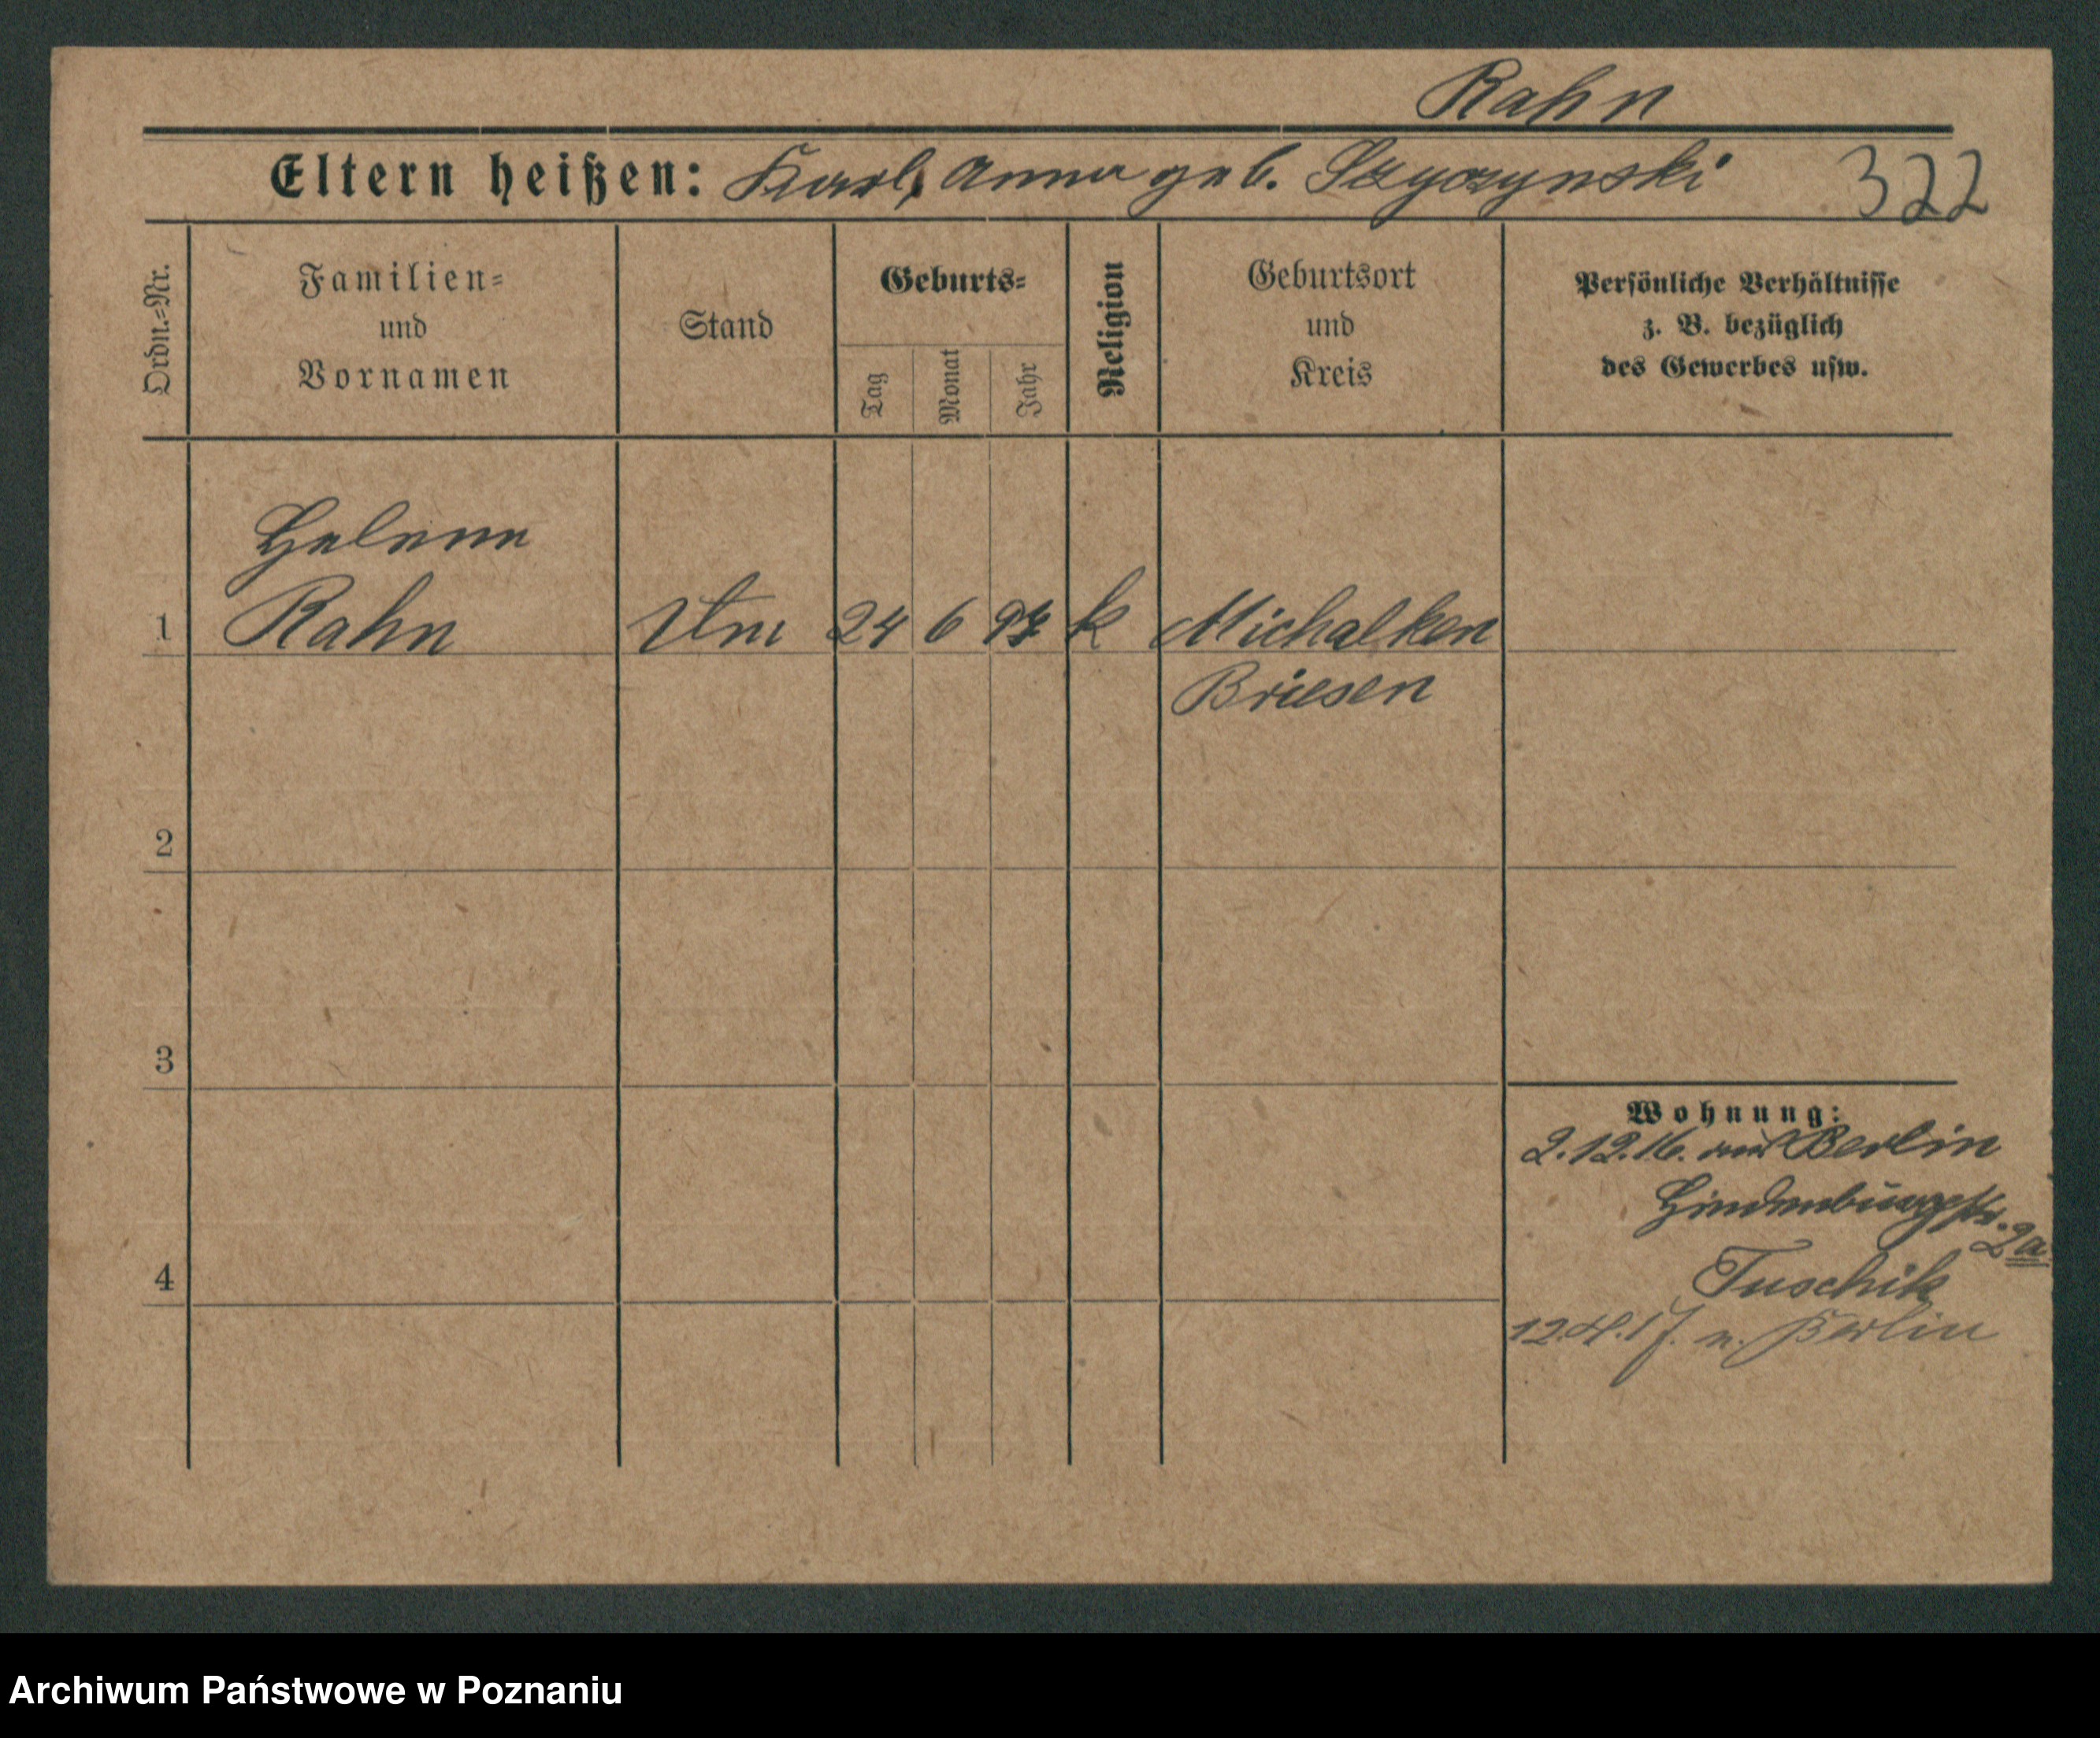 Rahn
Eltern heißen: Karl, Anna geb. Szyczynski 322
Ordn.-Nr.
Familien-
und
Vornamen
Stand
Geburts-
Tag
Monat
Jahr
Religion
Geburtsort
und
Kreis
Persönliche Verhältnisse
z. B. bezüglich
des Gewerbes usw.
Helene
1 Rahn 24 6 k Michalken
Briesen
2
3
4
Wohnung:
2.12.16. aus Berlin
Hindenburgstr. 2a
Tuschik
12.4.17. n. Berlin
Archiwum Państwowe w Poznaniu